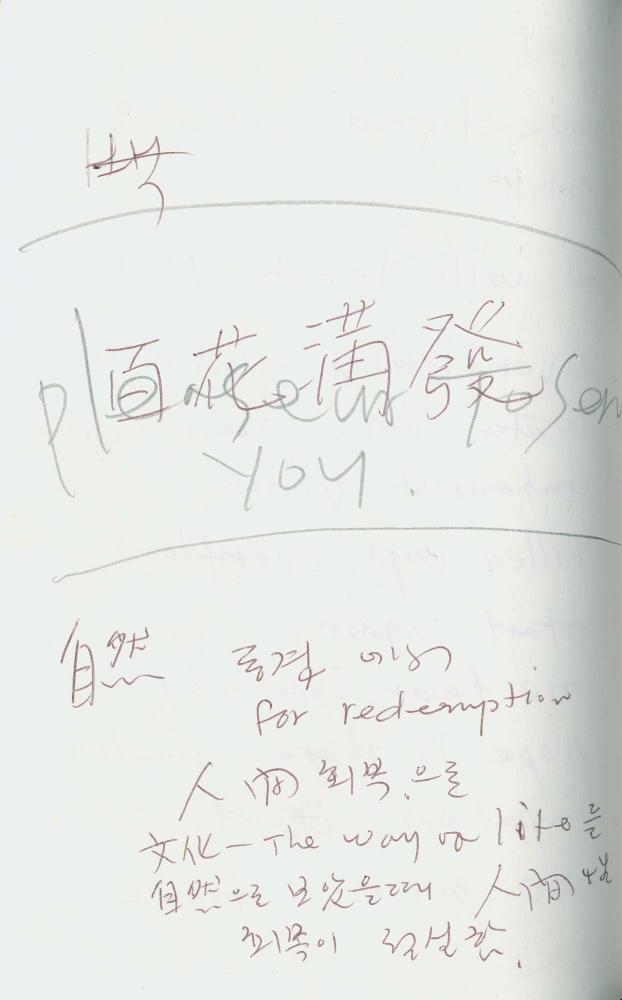 百花滿發
Please
you.
自然
for redemption
人間 회복.으로
文化 – The way of life를
自然으로 보았을때 人間性
회복이 절실함.